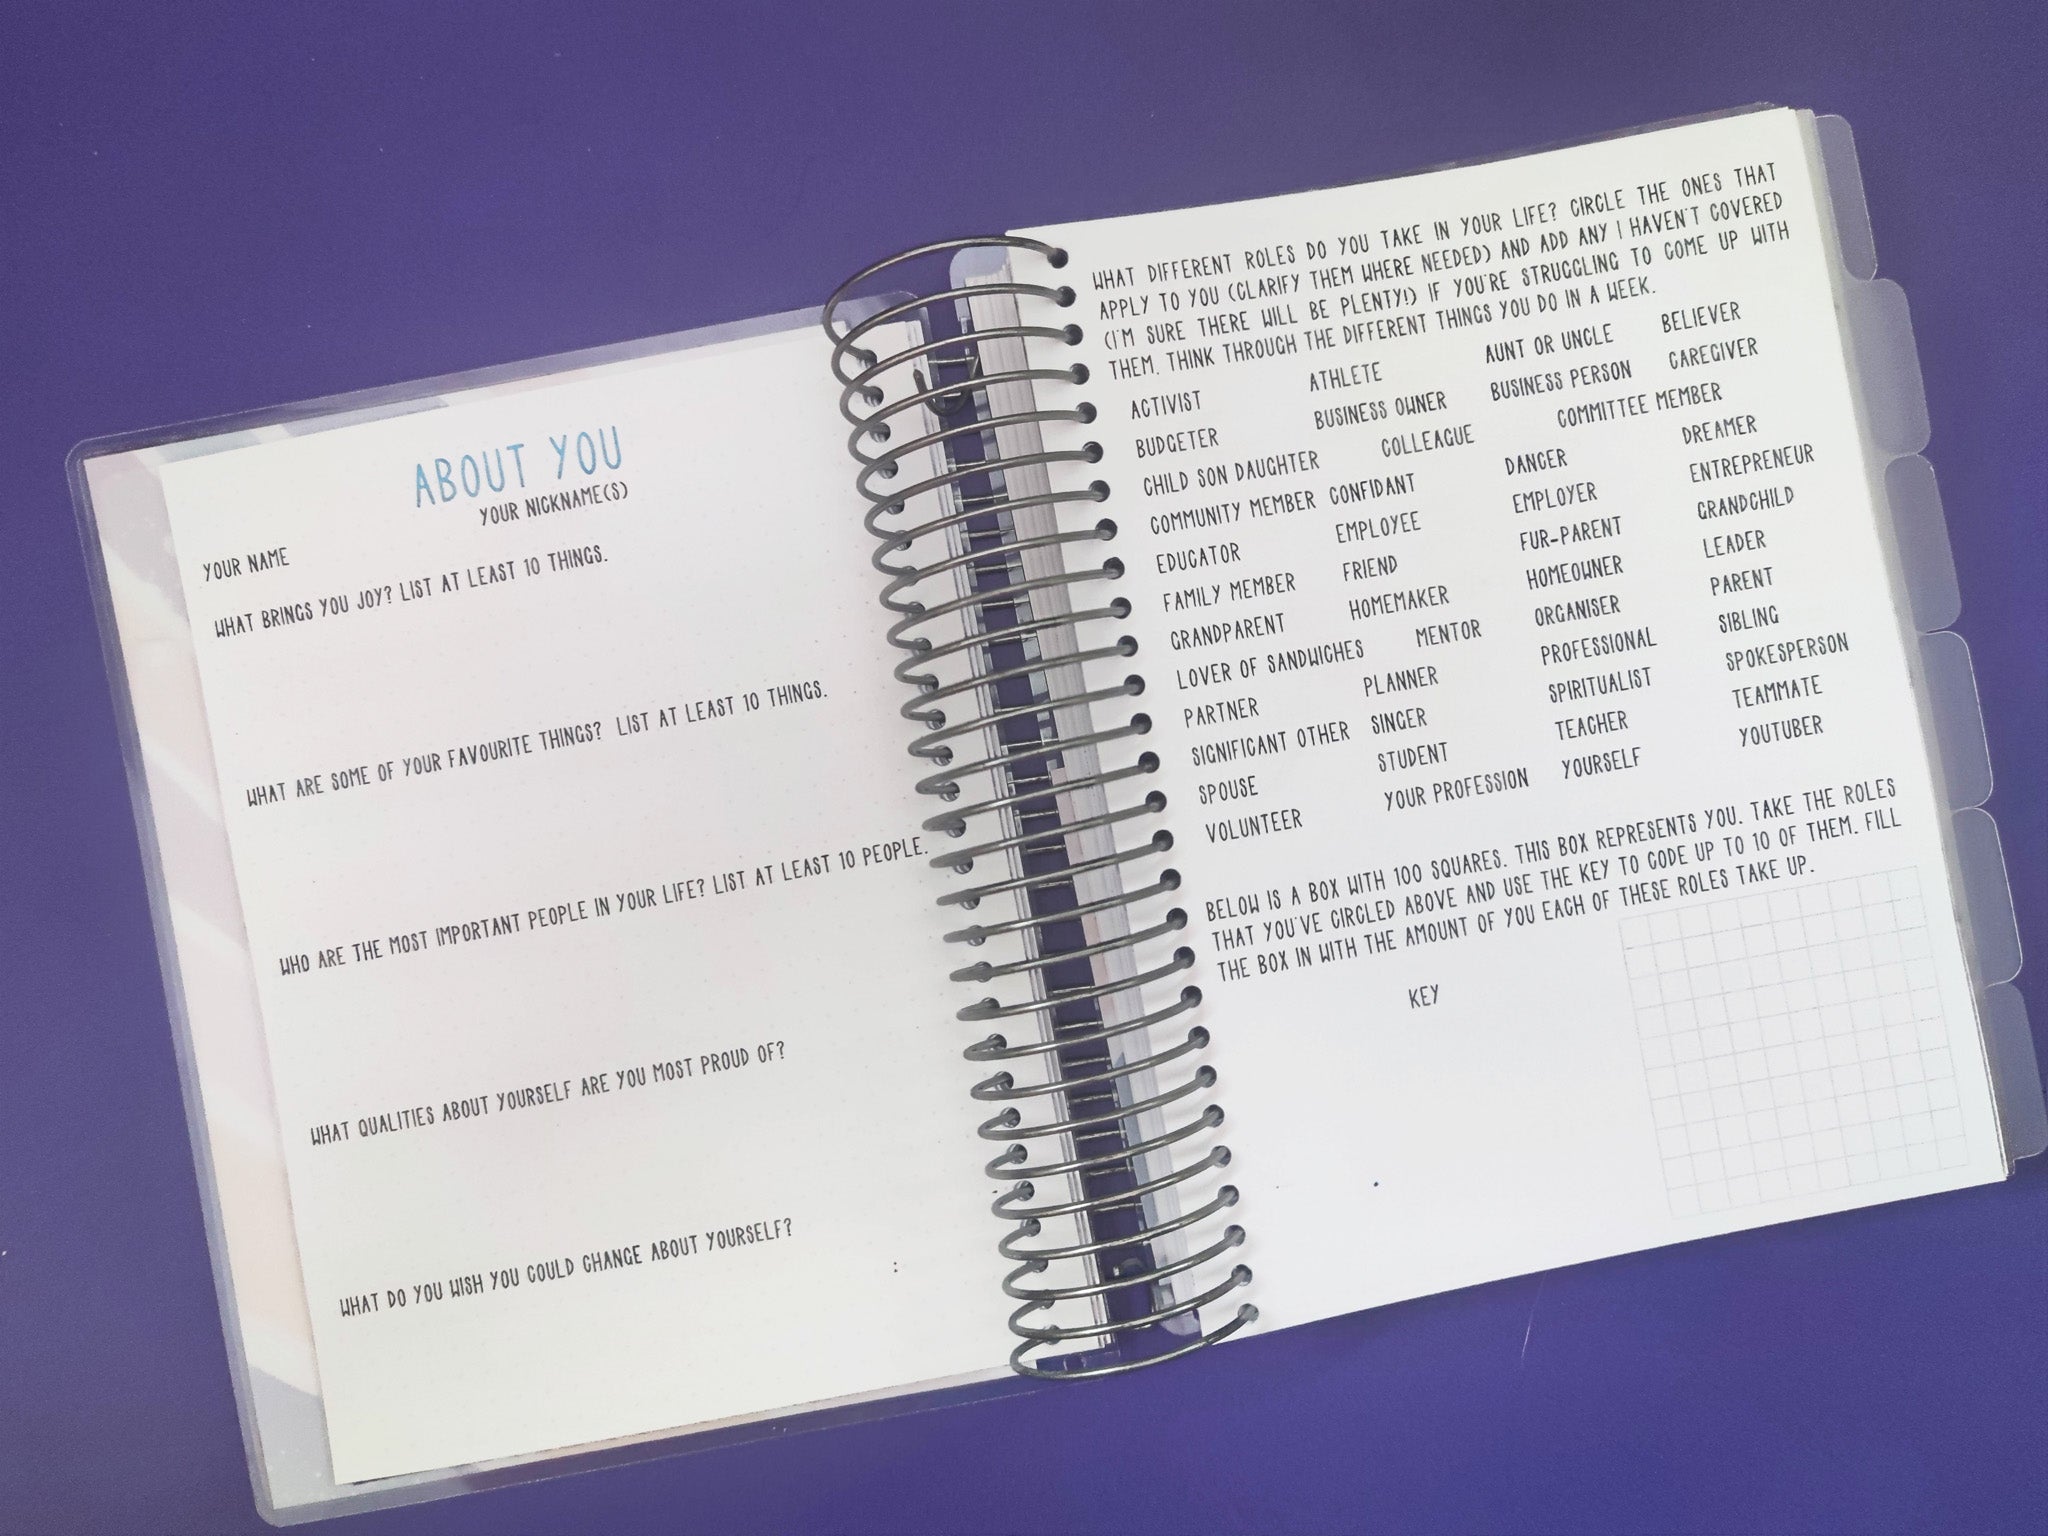 ABOUT YOU
YOUR NICKNAME(S)
YOUR NAME
WHAT BRINGS YOU JOY? LIST AT LEAST 10 THINGS.
WHAT ARE SOME OF YOUR FAVOURITE THINGS? LIST AT LEAST 10 THINGS.
WHO ARE THE MOST IMPORTANT PEOPLE IN YOUR LIFE? LIST AT LEAST 10 PEOPLE.
WHAT QUALITIES ABOUT YOURSELF ARE YOU MOST PROUD OF?
WHAT DO YOU WISH YOU COULD CHANGE ABOUT YOURSELF?
WHAT DIFFERENT ROLES DO YOU TAKE IN YOUR LIFE? CIRCLE THE ONES THAT
APPLY TO YOU (CLARIFY THEM WHERE NEEDED) AND ADD ANY I HAVEN'T COVERED
(I'M SURE THERE WILL BE PLENTY!) IF YOU'RE STRUGGLING TO COME UP WITH
THEM. THINK THROUGH THE DIFFERENT THINGS YOU DO IN A WEEK.
ACTIVIST ATHLETE AUNT OR UNCLE BELIEVER
BUDGETER BUSINESS OWNER BUSINESS PERSON CAREGIVER
CHILD SON DAUGHTER COLLEAGUE COMMITTEE MEMBER
COMMUNITY MEMBER CONFIDANT DANCER DREAMER
EDUCATOR EMPLOYEE EMPLOYER ENTREPRENEUR
FAMILY MEMBER FRIEND FUR-PARENT GRANDCHILD
GRANDPARENT HOMEMAKER HOMEOWNER LEADER
LOVER OF SANDWICHES MENTOR ORGANISER PARENT
PARTNER PLANNER PROFESSIONAL SIBLING
SIGNIFICANT OTHER SINGER SPIRITUALIST SPOKESPERSON
SPOUSE STUDENT TEACHER TEAMMATE
VOLUNTEER YOUR PROFESSION YOURSELF YOUTUBER
BELOW IS A BOX WITH 100 SQUARES. THIS BOX REPRESENTS YOU. TAKE THE ROLES
THAT YOU'VE CIRCLED ABOVE AND USE THE KEY TO CODE UP TO 10 OF THEM. FILL
THE BOX IN WITH THE AMOUNT OF YOU EACH OF THESE ROLES TAKE UP.
KEY